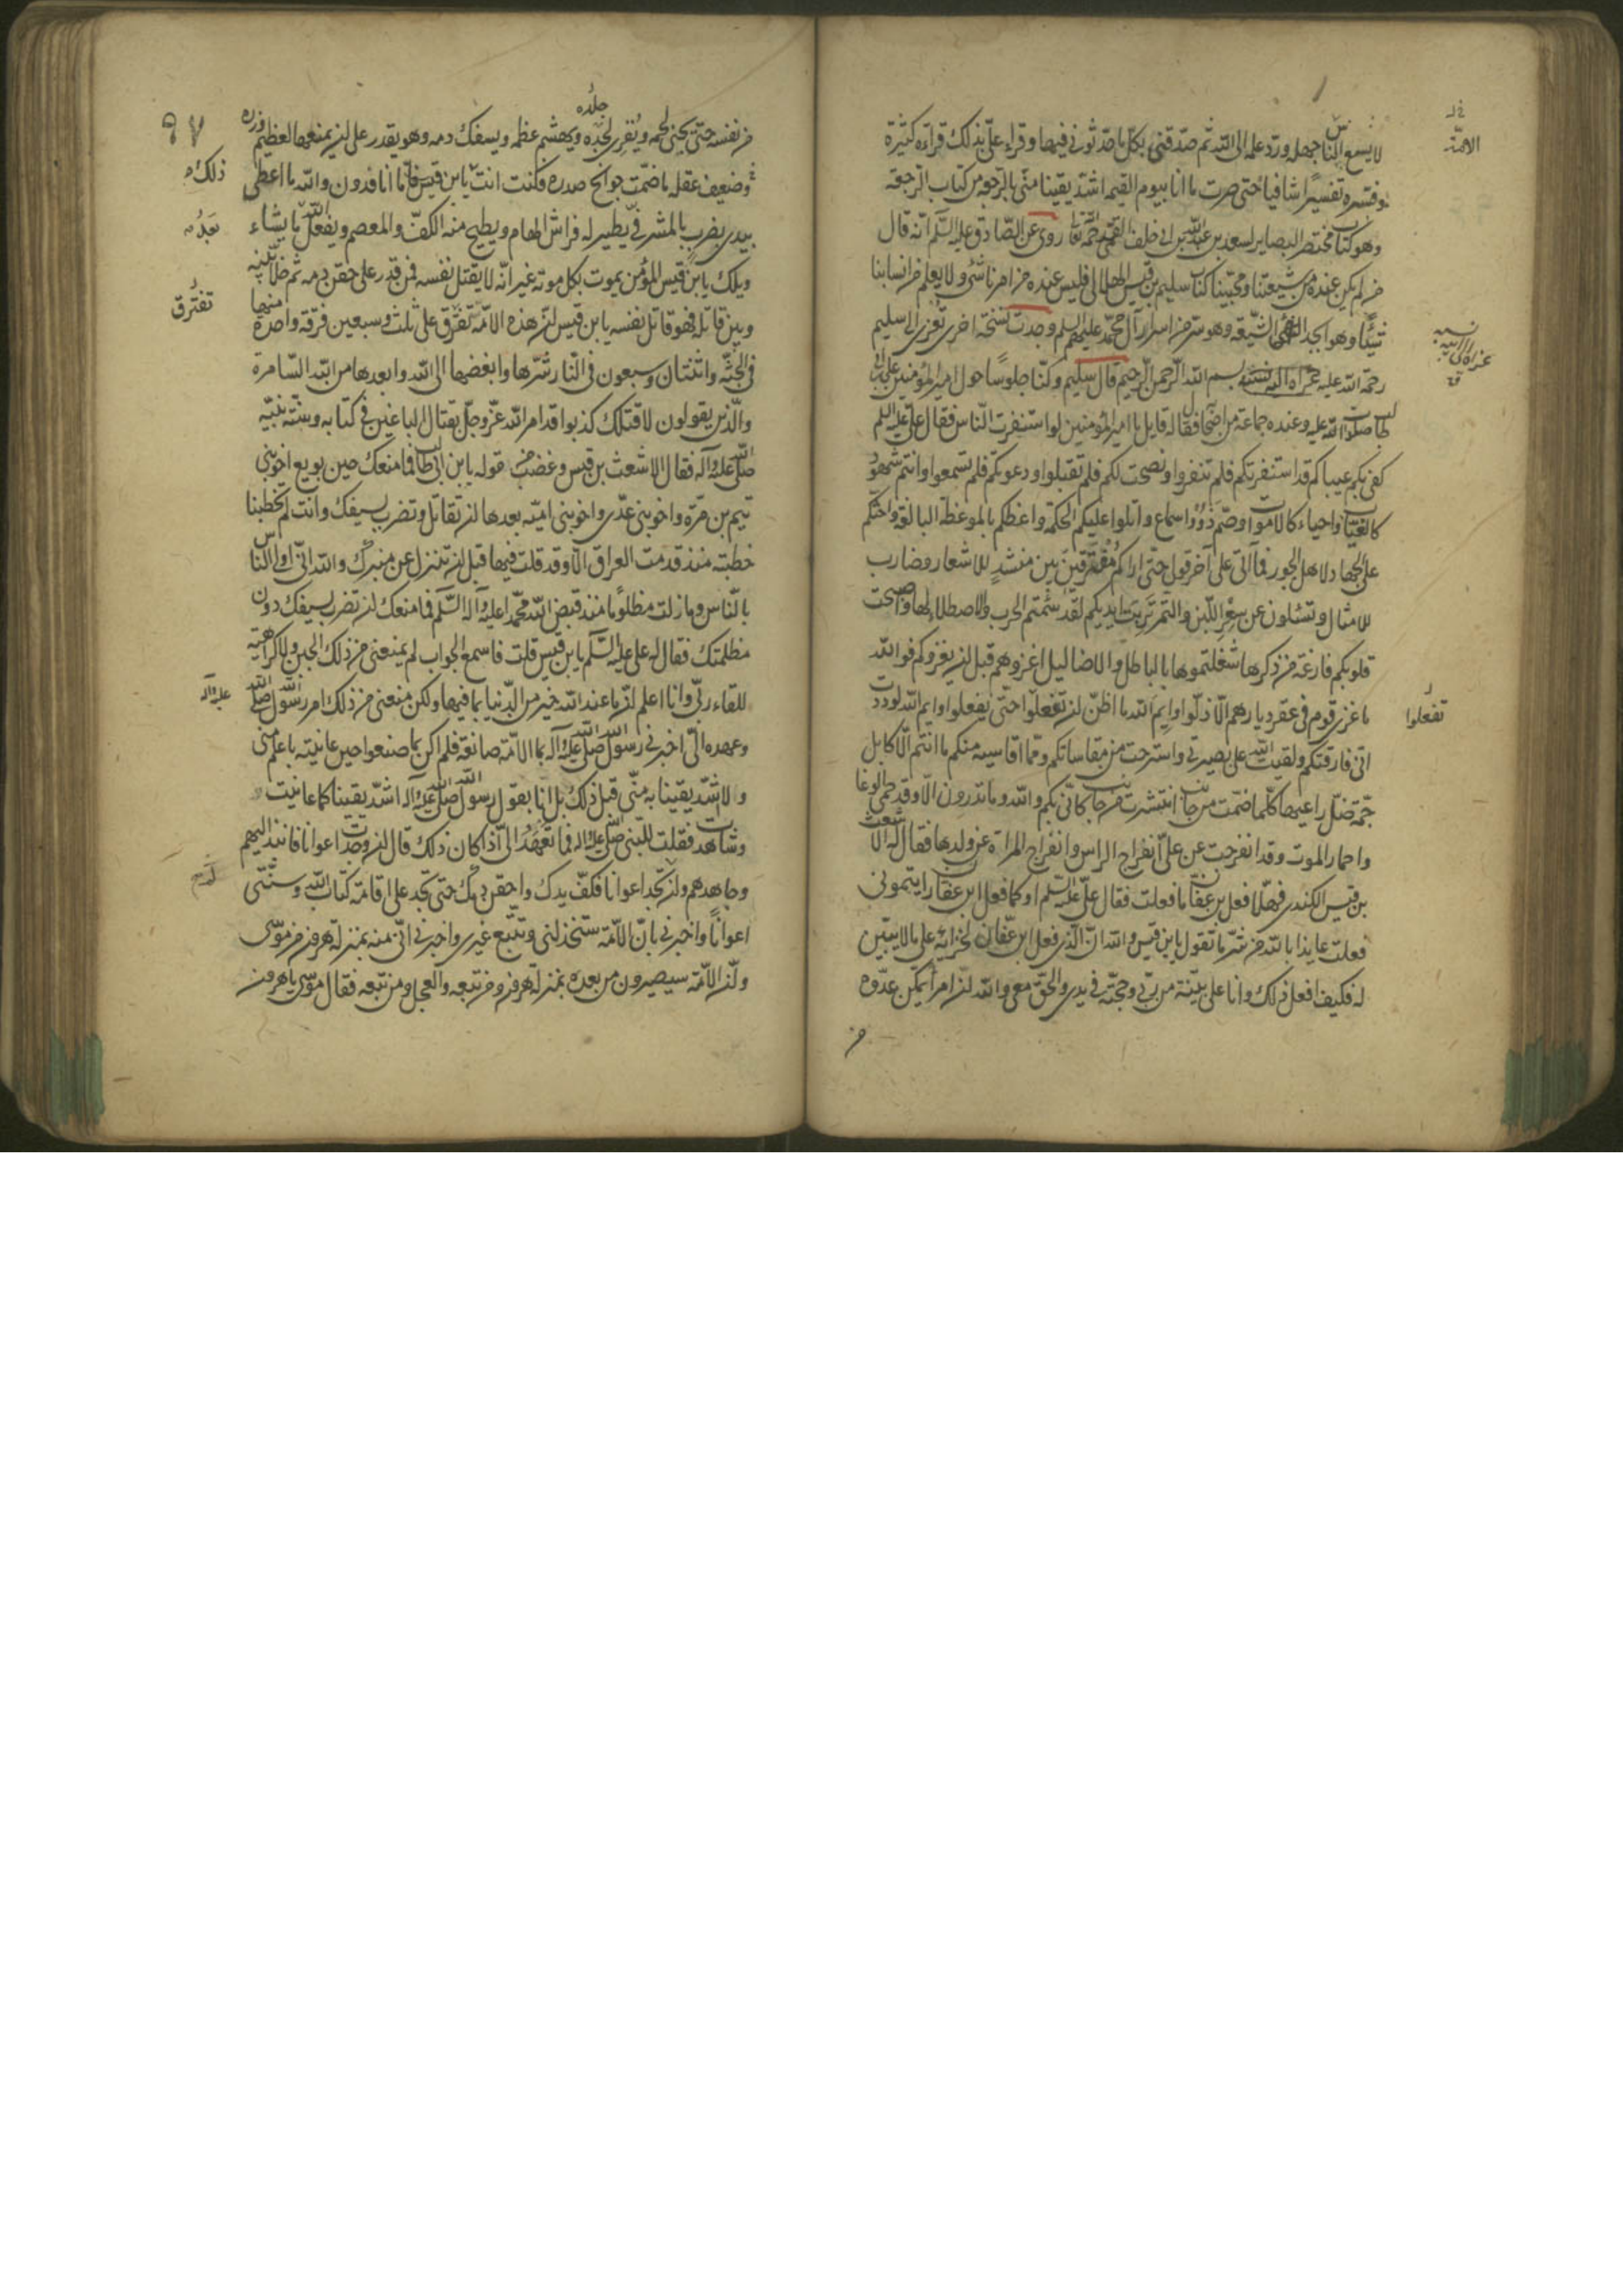 لا يسع الناس جهله ورد علمه الى الله ثم صدقني بكل ما حدثوني فيها وقراء علي بذلك قراءة كثيرة
وفسره تفسيرا شافيا حتى صرت ما انا بيوم القيمة اشد يقينا مني بالرجعة من كتاب الرجعة
وهو كتاب مختصر البصاير لسعد بن عبد الله بن ابي خلف القمي رحمه الله روى عن الصادق عليه السلم انه قال
من لم يكن عنده من شيعتنا ومحبينا كتاب سليم بن قيس الهلالي فليس عنده من امرنا شئ ولا يعلم من اسبابنا
شيئا وهو ابجد الشيعة وهو سر من اسرار آل محمد عليهم السلم وجدت نسخة اخرى تعزى الى سليم
رحمة الله عليه بسم الله الرحمن الرحيم قال سليم وكنا جلوسا حول امير المؤمنين علي بن ابي
طالب صلوات الله عليه وعنده جماعة من اصحابه فقال له قايل يا امير المؤمنين لو استنفرت الناس فقال علي عليه السلم
كفى بكم عيبا كم قد استنفرتكم فلم تنفروا ونصحت لكم فلم تقبلوا ودعوتكم فلم تسمعوا وانتم شهود
كالغياب واحياء كالاموات وصم ذوو اسماع واتلوا عليكم الحكمة واعظكم بالموعظة البالغة واحثكم
على الجهاد لاهل الجور فما آتي على آخر قولي حتى اراكم متفرقين بين منشد للاشعار وضارب
للامثال وتسئلون عن سعر اللبن والتمر تربت ايديكم لقد سئمتم الحرب والاصطلاء لها واصبحت
قلوبكم فارغة من ذكرها شغلتموها بالباطل والاضاليل اغزوهم قبل ان يغزوكم فوالله
ما غزي قوم في عقر ديارهم الا ذلوا وايم الله ما اظن ان تفعلوا حتى يفعلوا وايم الله لوددت
اني فارقتكم ولقيت الله على بصيرتي واسترحت من مقاساتكم ومما اقاسيه منكم ما انتم الا كابل
جمة ضل راعيها كلما ضمت من جانب انتشرت من جانب كاني بكم والله وما تدرون الا وقد حمي الوغا
واحمار الموت وقد انفرجت عن علي انفراج الراس وانفراج المراة عن ولدها فقال له الاشعث
بن قيس الكندي فهلا فعل بن عفان ما فعلت فقال علي عليه السلم او كما فعل ابن عفان رايتموني
فعلت عايذا بالله من شر ما تقول يا بن قيس والله ان الذي فعل ابن عفان لمخزاية على من لا يتبين
له فكيف افعل ذلك وانا على بينة من ربي وحجته في يدي والحق معي والله ان امرأ يمكن عدوه
من
الامة
تفعلوا
٩٧
من نفسه حتى يجتز لحمه ويفري جلده ويهشم عظمه ويسفك دمه وهو يقدر على ان يمنعه العظيم وزره
وضعيف عقله ما ضمت جوانح صدره فكنت انت يا بن قيس فاما انا فدون والله ما اعطي
بيدي ضرب بالمشرفي يطير له فراش الهام ويطيح منه الكف والمعصم ويفعل الله ما يشاء
ويلك يا بن قيس المؤمن يموت بكل موتة غير انه لا يقتل نفسه فمن قدر على حقن دمه ثم خلا بينه
وبين قاتله فهو قاتل نفسه يا بن قيس ان هذه الامة تفرق على ثلث وسبعين فرقة واحدة منها
في الجنة واثنتان وسبعون في النار شرها وابغضها الى الله وابعدها من الله السامرة
والذين يقولون لا قتال كذبوا قد امر الله عز وجل بقتال الباغين في كتابه وسنة نبيه
صلى الله عليه وآله فقال الاشعث بن قيس وغضب من قوله يا بن ابي طالب فما منعك حين بويع اخو بني
تيم بن مرة واخو بني عدي واخو بني امية بعدها ان تقاتل وتضرب بسيفك وانت لم تخطبنا
خطبة منذ قدمت العراق الا وقد قلت فيها قبل ان تنزل عن منبرك والله اني اولى الناس
بالناس وما زلت مظلوما منذ قبض الله محمدا عليه وآله السلم فما منعك ان تضرب بسيفك دون
مظلمتك فقال له علي عليه السلم يا بن قيس قلت فاسمع الجواب لم يمنعني من ذلك الجبن ولا كراهية
للقاء ربي وانا اعلم ان ما عند الله خير من الدنيا بما فيها ولكن منعني من ذلك امر رسول الله صلى الله
وعهده الي اخبرني رسول الله صلى الله عليه وآله بما الامة صانعة فلم اكن بما صنعوا حين عاينته باعلم مني
ولا اشد يقينا به مني قبل ذلك بل انا بقول رسول الله صلى الله عليه وآله اشد يقينا كما عاينت
وشاهدت فقلت للنبي صلى الله عليه وآله فما تعهد الي اذا كان ذلك قال ان وجدت اعوانا فانبذ اليهم
وجاهدهم وان لم تجد اعوانا فكف يدك واحقن دمك حتى تجد على اقامة كتاب الله وسنتي
اعوانا واخبرني بان الامة ستخذلني وتتبع غيري واخبرني اني منه بمنزلة هرون من موسى
وان الامة سيصيرون من بعده بمنزلة هرون ومن تبعه والعجل ومن تبعه فقال موسى يا هرون
ذلك
تفترق
عليه وآله